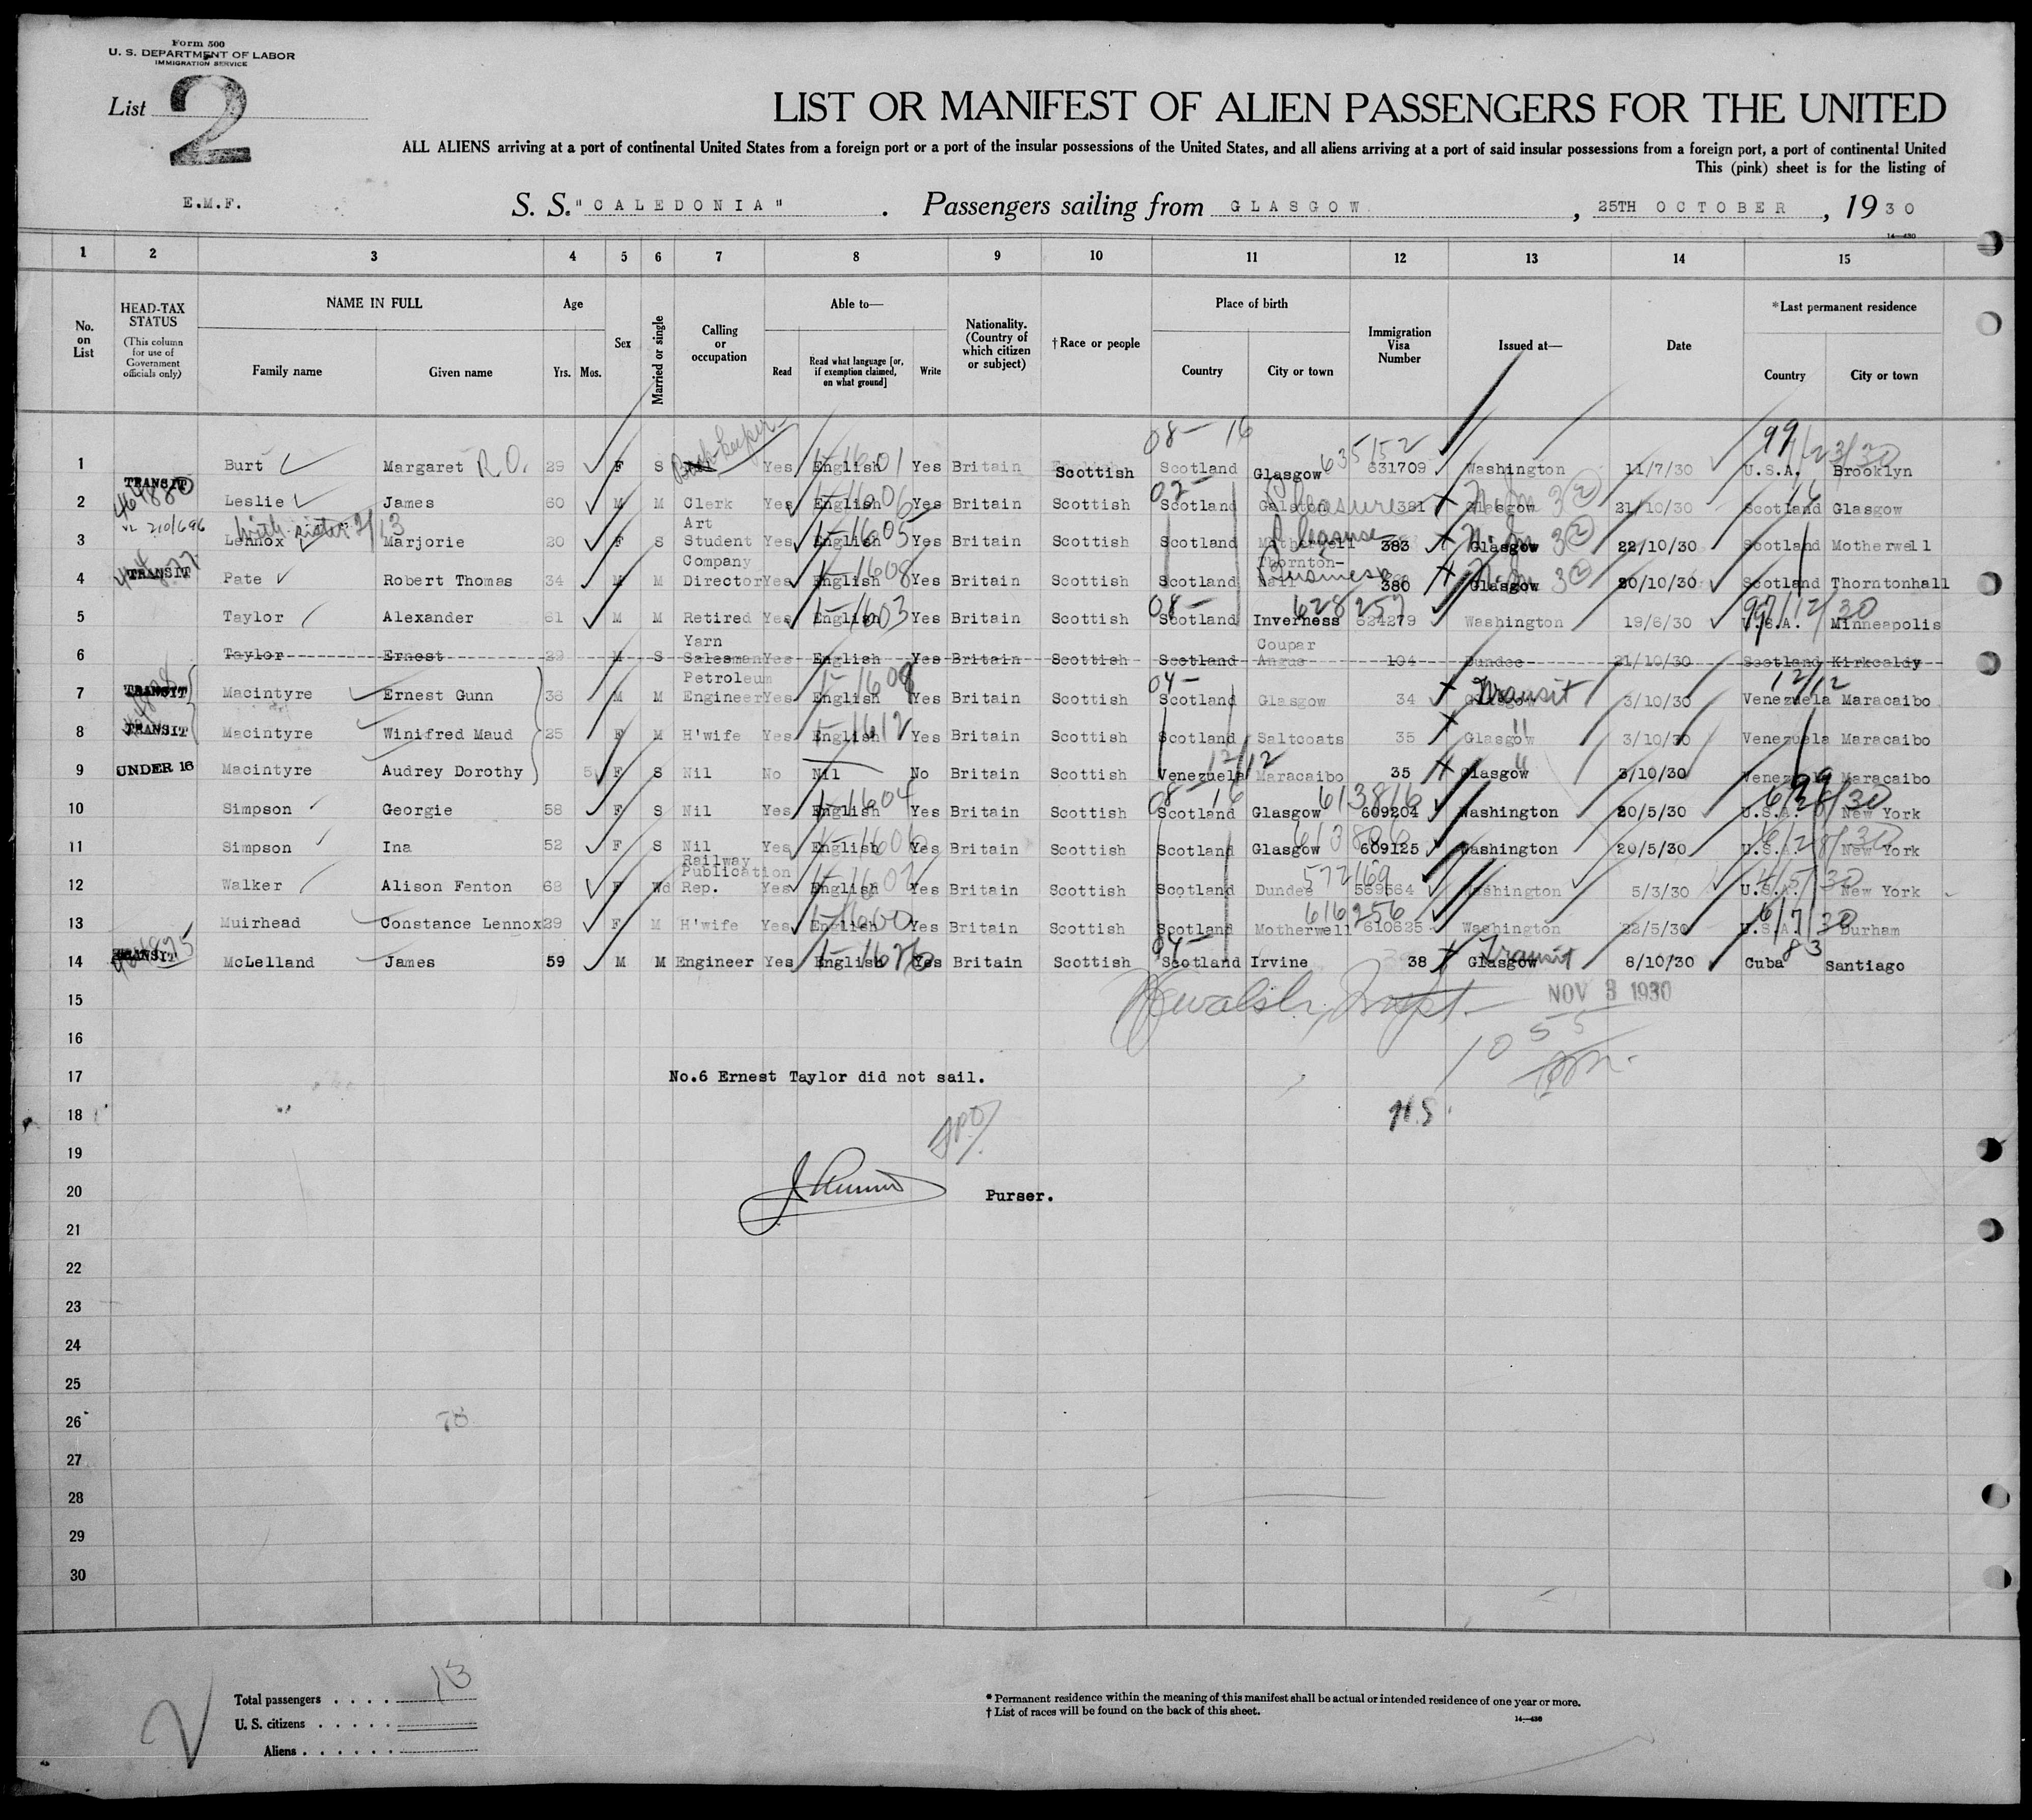 Form 500
U. S. DEPARTMENT OF LABOR
IMMIGRATION SERVICE
List 2
LIST OR MANIFEST OF ALIEN PASSENGERS FOR THE UNITED
ALL ALIENS arriving at a port of continental United States from a foreign port or a port of the insular possessions of the United States, and all aliens arriving at a port of said insular possessions from a foreign port, a port of continental United
This (pink) sheet is for the listing of
E.M.F.
S. S. "CALEDONIA" . Passengers sailing from GLASGOW , 25TH OCTOBER , 1930
14—430
1 2 3 4 5 6 7 8 9 10 11 12 13 14 15
No. on List
HEAD-TAX STATUS (This column for use of Government officials only)
NAME IN FULL
Family name Given name
Age
Yrs. Mos.
Sex
Married or single
Calling or occupation
Able to—
Read
Read what language [or, if exemption claimed, on what ground]
Write
Nationality. (Country of which citizen or subject)
†Race or people
Place of birth
Country City or town
Immigration Visa Number
Issued at—
Date
*Last permanent residence
Country City or town
08— 16 99
1 Burt Margaret R.O. 29 F S Book-keeper Yes English 1601 Yes Britain Scottish Scotland Glasgow 635152 631709 Washington 11/7/30 U.S.A. Brooklyn
2 TRANSIT Leslie James 60 M M Clerk Yes English 1606 Yes Britain Scottish Scotland Galston Pleasure 381 Glasgow 21/10/30 Scotland Glasgow
with sister 2/13
3 Lennox Marjorie 20 F S Art Student Yes English 1605 Yes Britain Scottish Scotland Motherwell Pleasure 383 Glasgow 22/10/30 Scotland Motherwell
4 TRANSIT Pate Robert Thomas 34 M M Company Director Yes English 1608 Yes Britain Scottish Scotland Thornton-hall Business 380 Glasgow 20/10/30 Scotland Thorntonhall
5 Taylor Alexander 61 M M Retired Yes English 1603 Yes Britain Scottish Scotland Inverness 628257 624279 Washington 19/6/30 U.S.A. Minneapolis
6 Taylor Ernest 29 M S Yarn Salesman Yes English Yes Britain Scottish Scotland Coupar Angus 104 Dundee 21/10/30 Scotland Kirkcaldy
7 TRANSIT Macintyre Ernest Gunn 36 M M Petroleum Engineer Yes English Yes Britain Scottish Scotland Glasgow 34 Glasgow Transit 3/10/30 Venezuela Maracaibo
8 TRANSIT Macintyre Winifred Maud 25 F M H'wife Yes English 1612 Yes Britain Scottish Scotland Saltcoats 35 Glasgow " 3/10/30 Venezuela Maracaibo
9 UNDER 16 Macintyre Audrey Dorothy 5 F S Nil No Nil No Britain Scottish Venezuela 12/12 Maracaibo 35 Glasgow " 3/10/30 Venezuela Maracaibo
10 Simpson Georgie 58 F S Nil Yes English 1604 Yes Britain Scottish Scotland Glasgow 613816 609204 Washington 20/5/30 U.S.A. New York
11 Simpson Ina 52 F S Nil Yes English Yes Britain Scottish Scotland Glasgow 609125 Washington 20/5/30 U.S.A. New York
12 Walker Alison Fenton 68 F Wd Railway Publication Rep. Yes English 1602 Yes Britain Scottish Scotland Dundee 572169 569564 Washington 5/3/30 U.S.A. New York
13 Muirhead Constance Lennox 29 F M H'wife Yes English 1600 Yes Britain Scottish Scotland Motherwell 616256 610625 Washington 22/5/30 U.S.A. 6/7/30 Durham
14 TRANSIT McLelland James 59 M M Engineer Yes English Yes Britain Scottish Scotland Irvine 38 Glasgow Transit 8/10/30 Cuba 83 Santiago
15 NOV 3 1930
16
17 No.6 Ernest Taylor did not sail.
18 N.S.
19
20 Purser.
21
22
23
24
25
26 78
27
28
29
30
Total passengers . . . . 13
U. S. citizens . . . . .
Aliens . . . . . .
* Permanent residence within the meaning of this manifest shall be actual or intended residence of one year or more.
† List of races will be found on the back of this sheet.
14—430